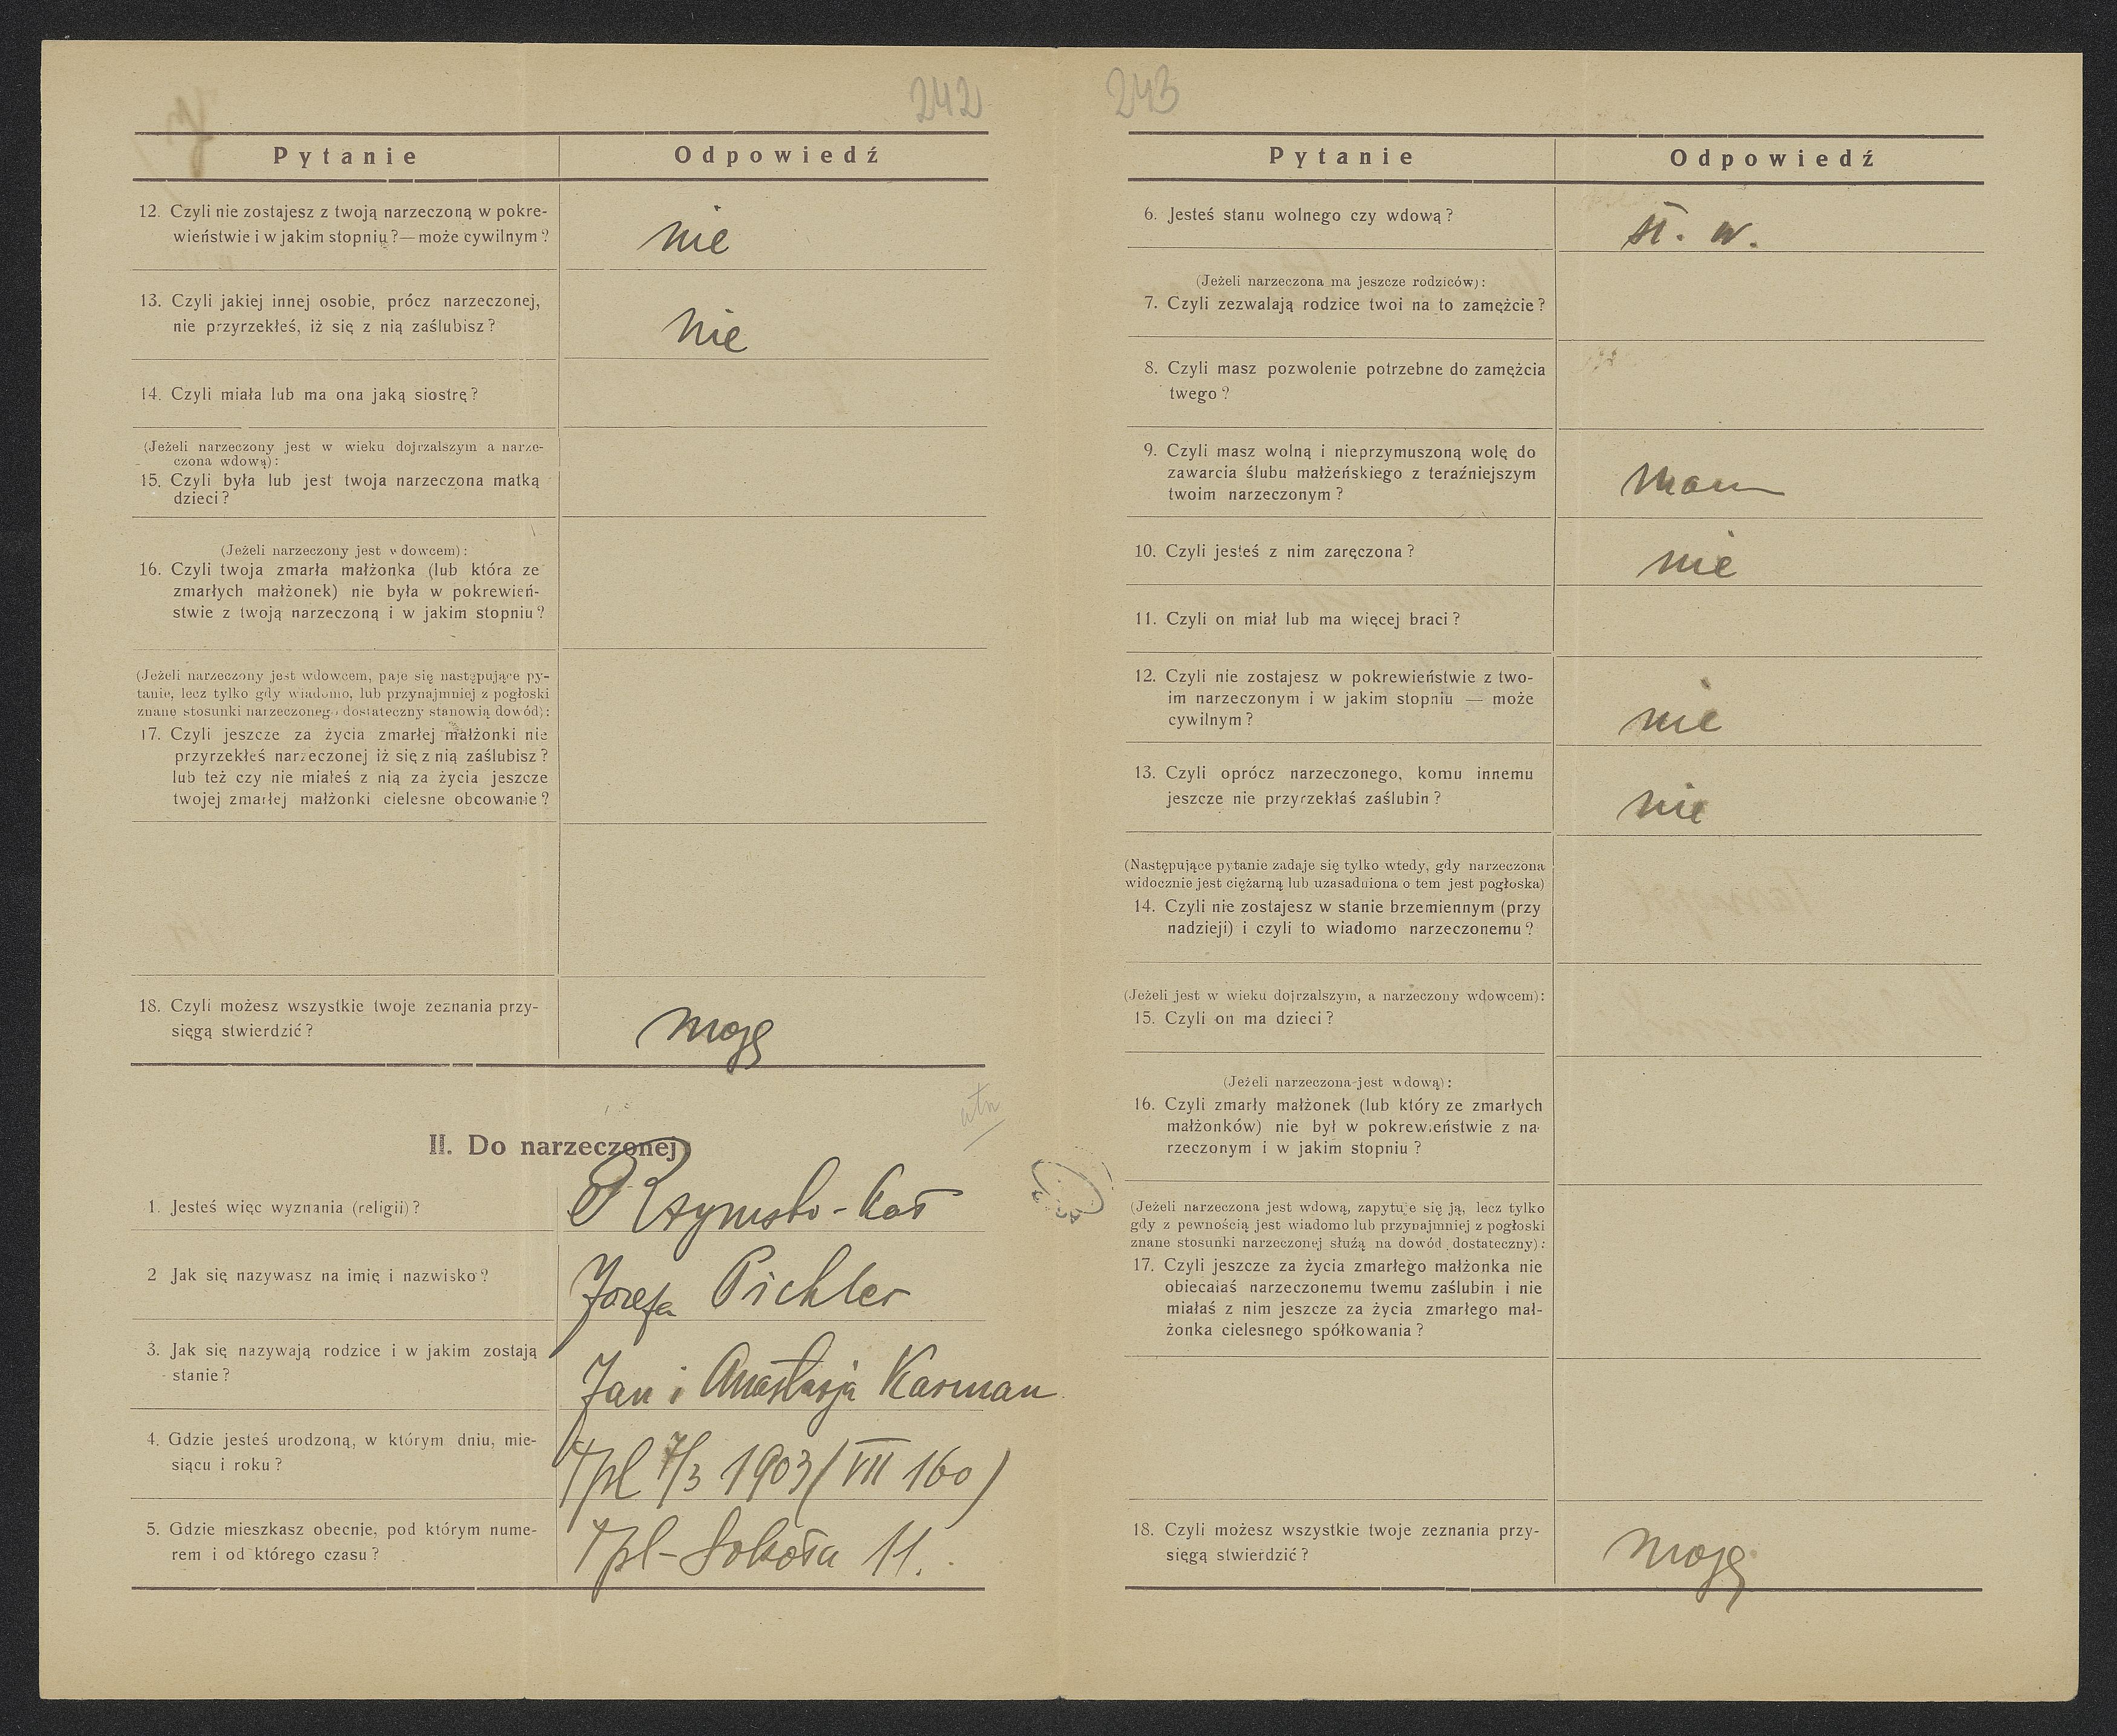 242
Pytanie
Odpowiedź
12. Czyli nie zostajesz z twoją narzeczoną w pokre-
wieństwie i w jakim stopniu?—może cywilnym?
nie
13. Czyli jakiej innej osobie, prócz narzeczonej,
nie przyrzekłeś, iż się z nią zaślubisz?
nie
14. Czyli miała lub ma ona jaką siostrę?
(Jeżeli narzeczony jest w wieku dojrzalszym a narze-
czona wdową):
15. Czyli była lub jest twoja narzeczona matką
dzieci?
(Jeżeli narzeczony jest wdowcem):
16. Czyli twoja zmarła małżonka (lub która ze
zmarłych małżonek) nie była w pokrewień-
stwie z twoją narzeczoną i w jakim stopniu?
(Jeżeli narzeczony jest wdowcem, paje się następujące py-
tanie, lecz tylko gdy wiadomo, lub przynajmniej z pogłoski
znane stosunki narzeczonego dostateczny stanowią dowód):
17. Czyli jeszcze za życia zmarłej małżonki nie
przyrzekłeś narzeczonej iż się z nią zaślubisz?
lub też czy nie miałeś z nią za życia jeszcze
twojej zmarłej małżonki cielesne obcowanie?
18. Czyli możesz wszystkie twoje zeznania przy-
sięgą stwierdzić?
mogę
II. Do narzeczonej
1. Jesteś więc wyznania (religii)?
Rzymsko-kat
2 Jak się nazywasz na imię i nazwisko?
Józefa Pichler
3. Jak się nazywają rodzice i w jakim zostają
stanie?
Jan i Anastazja Karman
4. Gdzie jesteś urodzoną, w którym dniu, mie-
siącu i roku?
Tpl 7/3 1903 (VII 160)
5. Gdzie mieszkasz obecnie, pod którym nume-
rem i od którego czasu?
Tpl-Sokoła 11.
243
Pytanie
Odpowiedź
6. Jesteś stanu wolnego czy wdową?
st. w.
(Jeżeli narzeczona ma jeszcze rodziców):
7. Czyli zezwalają rodzice twoi na to zamężcie?
8. Czyli masz pozwolenie potrzebne do zamężcia
twego?
9. Czyli masz wolną i nieprzymuszoną wolę do
zawarcia ślubu małżeńskiego z teraźniejszym
twoim narzeczonym?
mam
10. Czyli jesteś z nim zaręczona?
nie
11. Czyli on miał lub ma więcej braci?
12. Czyli nie zostajesz w pokrewieństwie z two-
im narzeczonym i w jakim stopniu — może
cywilnym?
nie
13. Czyli oprócz narzeczonego, komu innemu
jeszcze nie przyrzekłaś zaślubin?
nie
(Następujące pytanie zadaje się tylko wtedy, gdy narzeczona
widocznie jest ciężarną lub uzasadniona o tem jest pogłoska)
14. Czyli nie zostajesz w stanie brzemiennym (przy
nadzieji) i czyli to wiadomo narzeczonemu?
(Jeżeli jest w wieku dojrzalszym, a narzeczony wdowcem):
15. Czyli on ma dzieci?
(Jeżeli narzeczona jest wdową):
16. Czyli zmarły małżonek (lub który ze zmarłych
małżonków) nie był w pokrewieństwie z na-
rzeczonym i w jakim stopniu?
(Jeżeli narzeczona jest wdową, zapytuje się ją, lecz tylko
gdy z pewnością jest wiadomo lub przynajmniej z pogłoski
znane stosunki narzeczonej służą na dowód dostateczny):
17. Czyli jeszcze za życia zmarłego małżonka nie
obiecałaś narzeczonemu twemu zaślubin i nie
miałaś z nim jeszcze za życia zmarłego mał-
żonka cielesnego spółkowania?
18. Czyli możesz wszystkie twoje zeznania przy-
sięgą stwierdzić?
mogę